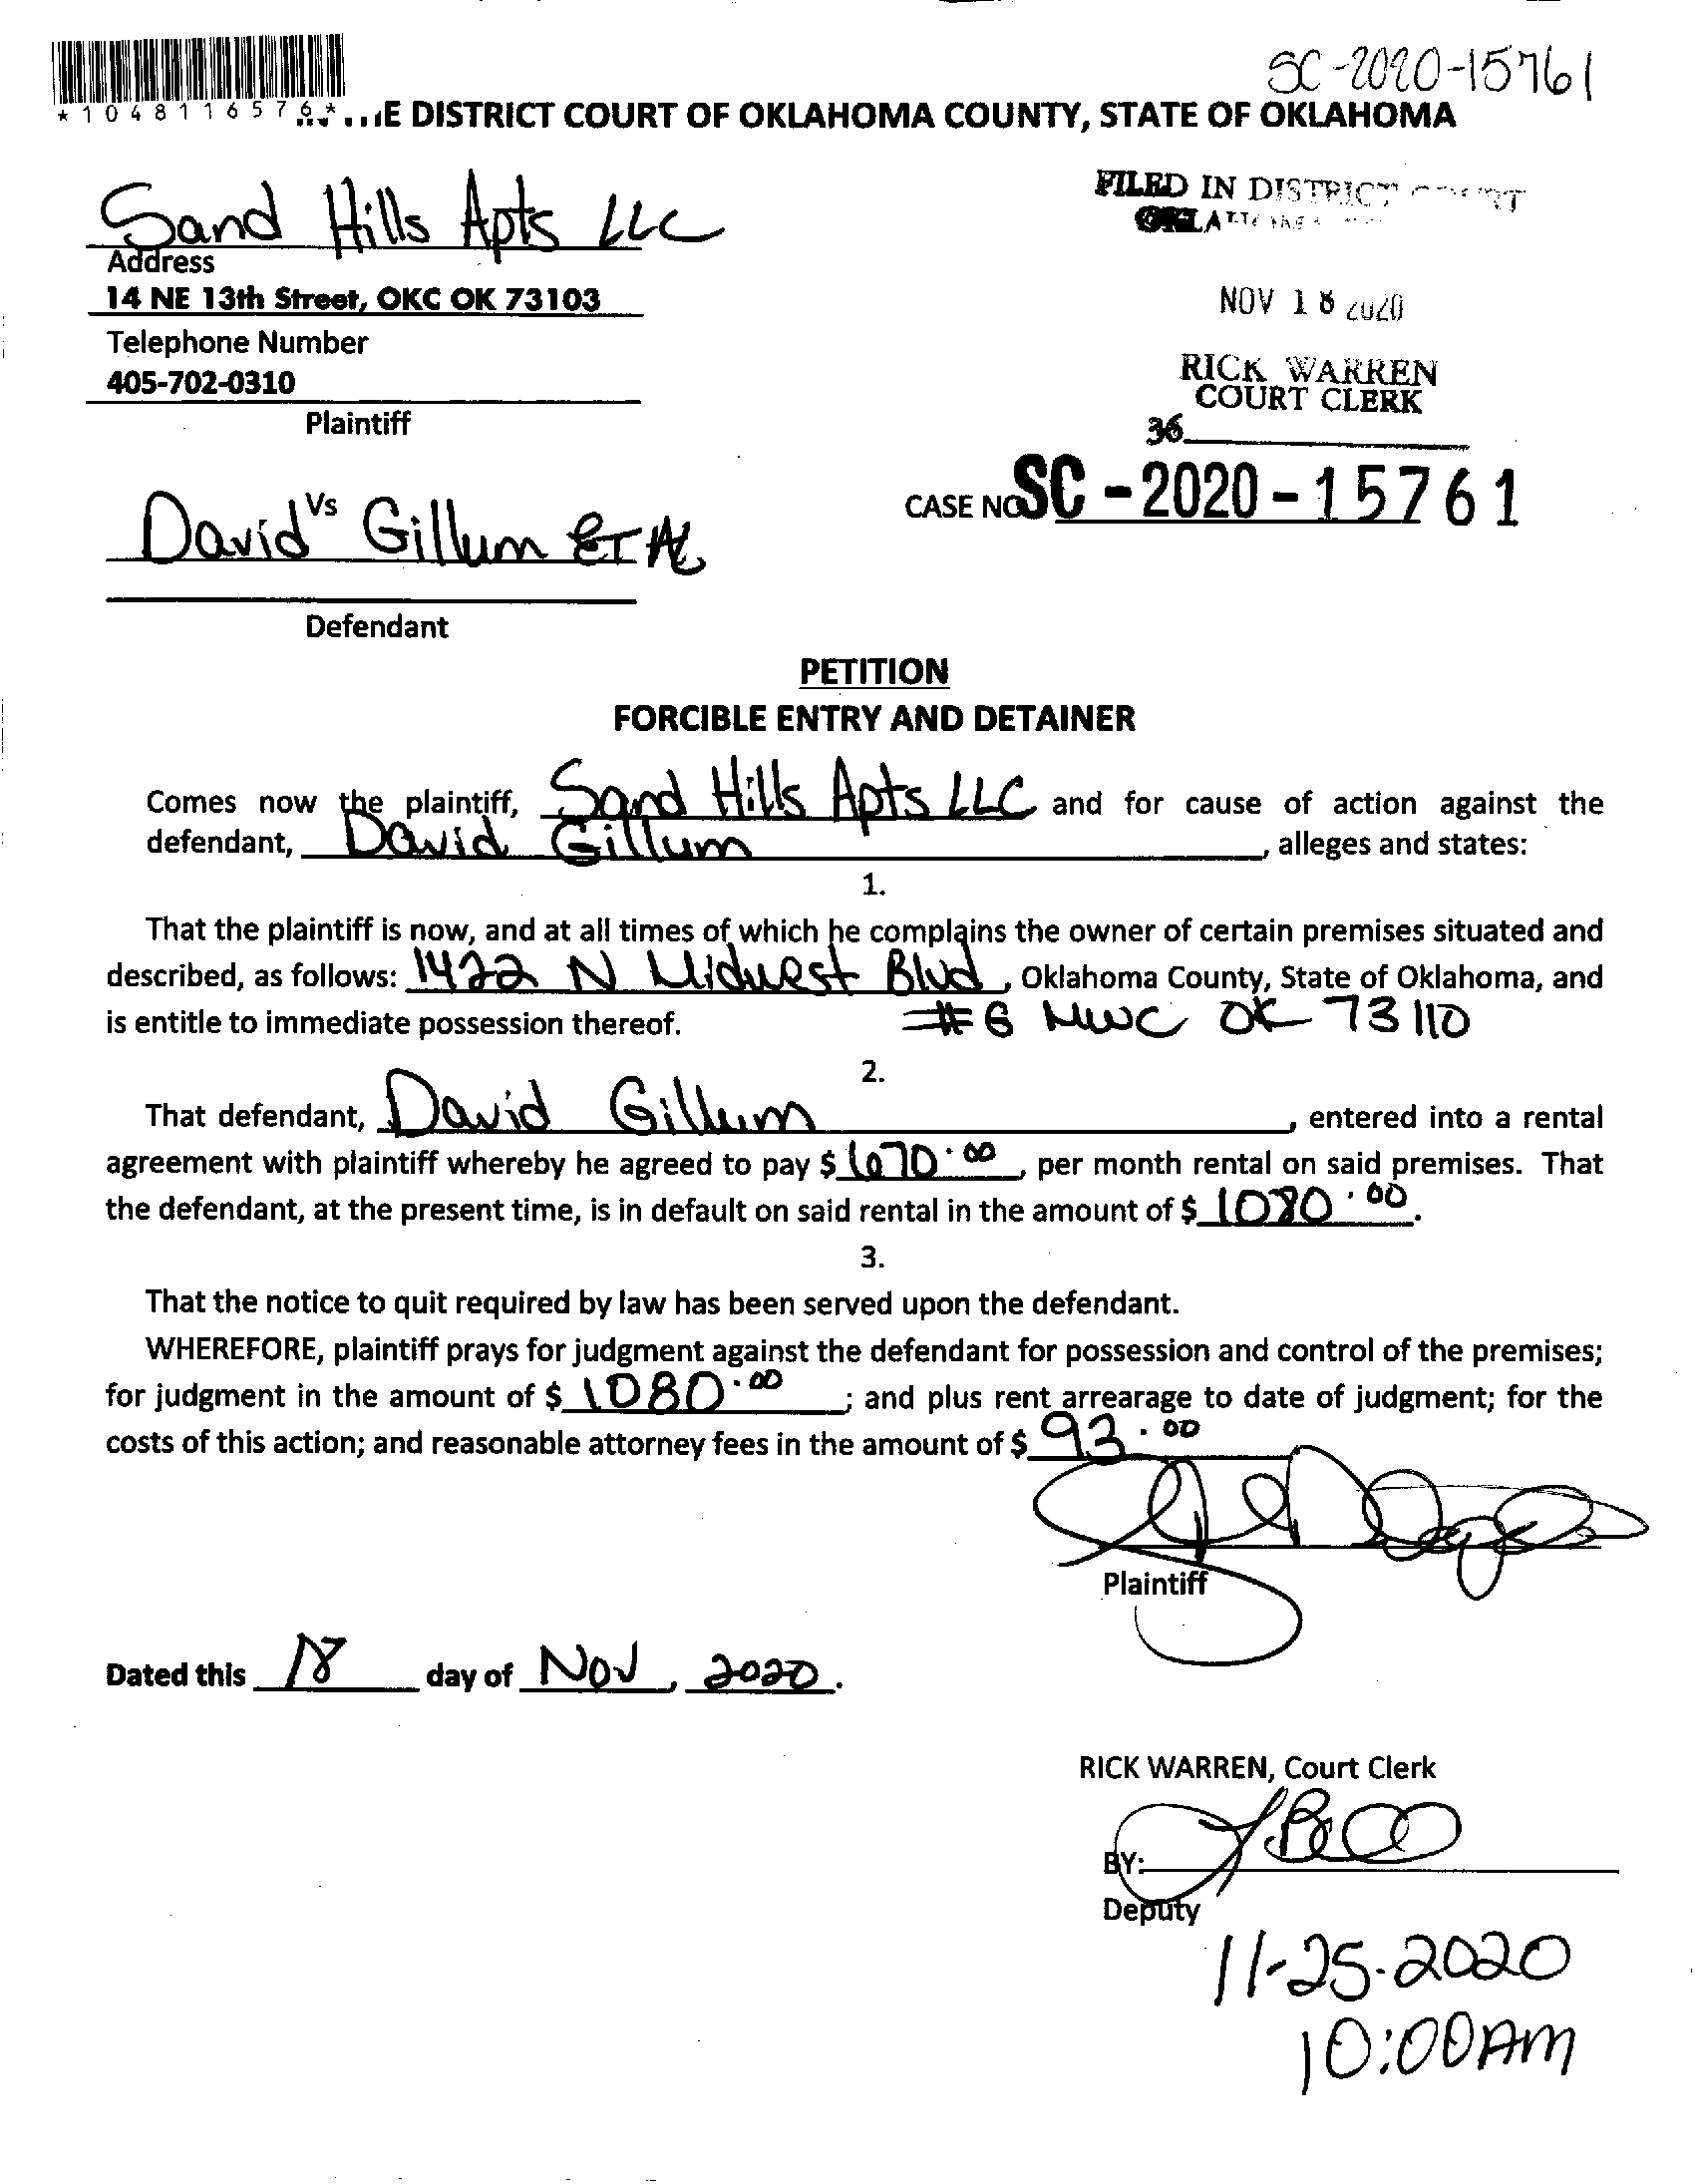 SC-2020-15761
*1048116576*
E DISTRICT COURT OF OKLAHOMA COUNTY, STATE OF OKLAHOMA
Sand Hills Apts LLC
Address
14 NE 13th Street, OKC OK 73103
Telephone Number
405-702-0310
Plaintiff
FILED IN DISTRICT COURT
NOV 18 2020
RICK WARREN
COURT CLERK
36
CASE NO SC-2020-15761
Vs
David Gillum ET AL
Defendant
PETITION
FORCIBLE ENTRY AND DETAINER
Comes now the plaintiff, Sand Hills Apts LLC and for cause of action against the
defendant, David Gillum, alleges and states:
1.
That the plaintiff is now, and at all times of which he complains the owner of certain premises situated and
described, as follows: 1422 N Midwest Blvd, Oklahoma County, State of Oklahoma, and
is entitle to immediate possession thereof. #6 MWC OK 73110
2.
That defendant, David Gillum, entered into a rental
agreement with plaintiff whereby he agreed to pay $ 670.00, per month rental on said premises. That
the defendant, at the present time, is in default on said rental in the amount of $ 1080.00.
3.
That the notice to quit required by law has been served upon the defendant.
WHEREFORE, plaintiff prays for judgment against the defendant for possession and control of the premises;
for judgment in the amount of $ 1080.00; and plus rent arrearage to date of judgment; for the
costs of this action; and reasonable attorney fees in the amount of $ 93.00
Plaintiff
Dated this 18 day of Nov, 2020.
RICK WARREN, Court Clerk
BY:
Deputy
11-25-2020
10:00AM